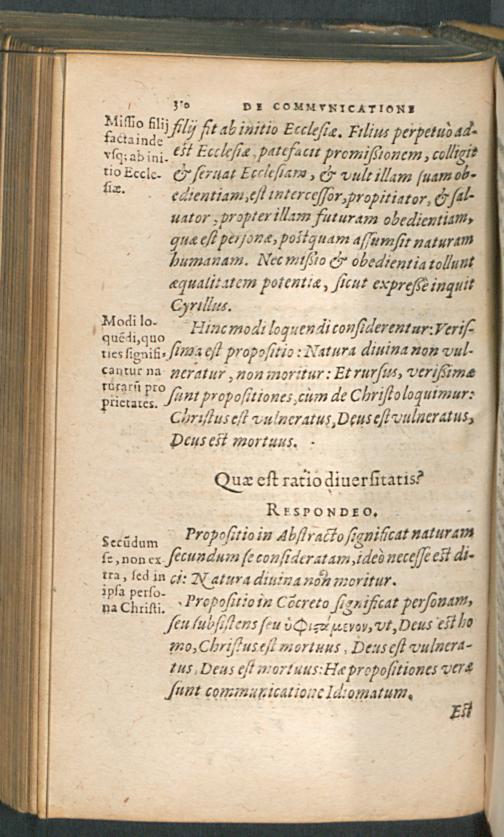 310 DE COMMVNICATIONE
Missio filij
facta inde
vsq; ab ini-
tio Eccle-
siæ.
filij fit ab initio Ecclesiæ. Filius perpetuò ad-
est Ecclesiæ, patefacit promißionem, colligit
& seruat Ecclesiam, & vult illam suam ob-
edientiam, est intercessor, propitiator, & sal-
uator, propter illam futuram obedientiam,
quæ est personæ, postquam assumsit naturam
humanam. Nec mißio & obedientia tollunt
æqualitatem potentiæ, sicut expreßè inquit
Cyrillus.
Modi lo-
quēdi, quo
ties signifi-
cantur na
turarū pro
prietates.
Hinc modi loquendi considerentur: Veris-
sima est propositio: Natura diuina non vul-
neratur, non moritur: Et rursus, verißimæ
sunt propositiones, cùm de Christo loquimur:
Christus est vulneratus, Deus est vulneratus,
Deus est mortuus.
Quæ est ratio diuersitatis?
RESPONDEO.
Secūdum
se, non ex-
tra, sed in
ipsa perso-
na Christi.
Propositio in Abstracto significat naturam
secundum se consideratam, ideò necesse est di-
ci: Natura diuina non moritur.
Propositio in Cōcreto significat personam,
seu subsistens seu ὑφιςάμενον, vt, Deus est ho
mo, Christus est mortuus, Deus est vulnera-
tus, Deus est mortuus: Hæ propositiones veræ
sunt communicatione Idiomatum.
Est